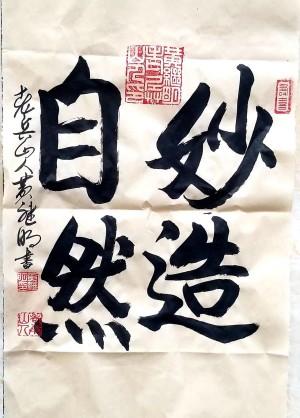 妙造
自然
老兵山人黄继明書